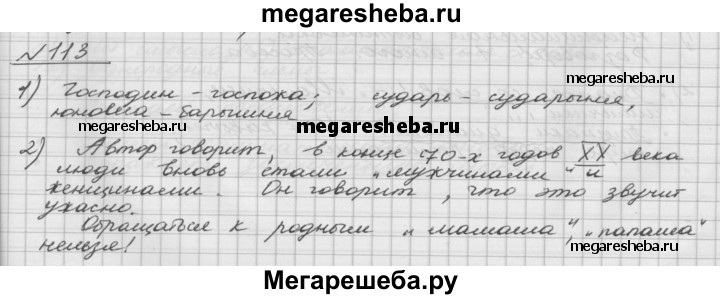 megaresheba.ru
№ 113
1) Господин - госпожа; сударь - сударыня,
megaresheba.ru
юноша - барышня
megaresheba.ru
megaresheba.ru
megaresheba.ru
2) Автор говорит, в конце 70-х годов XX века
люди вновь стали "мужчинами" и
megaresheba.ru
женщинами. Он говорит, что это звучит
ужасно.
Обращаться к родным "мамаша", "папаша"
нельзя!
megaresheba.ru
megaresheba.ru
Мегарешеба.ру